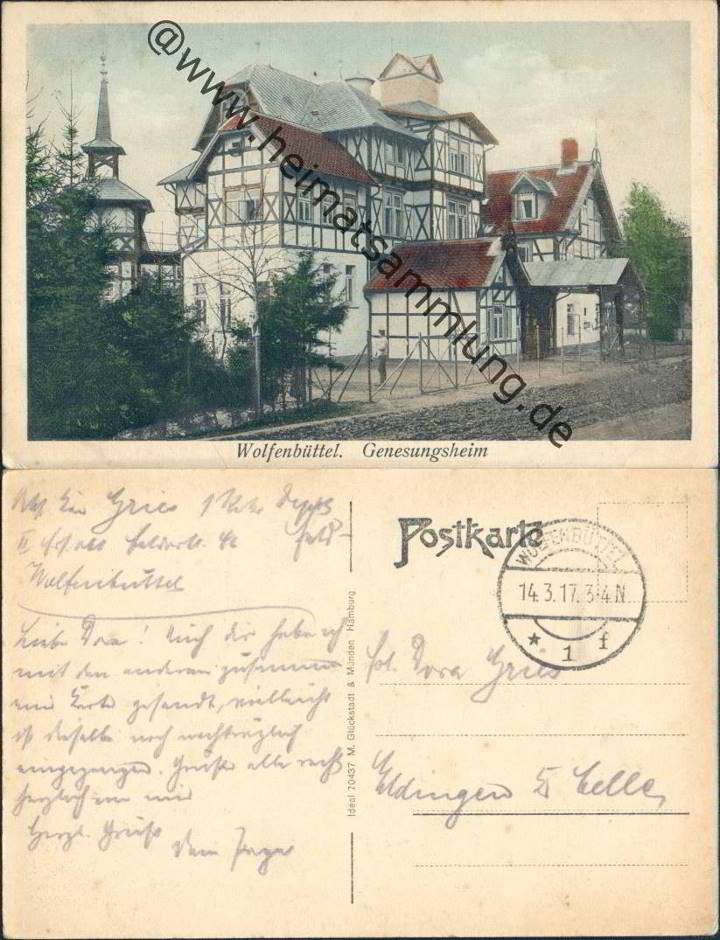 @www.heimatsammlung.de
Wolfenbüttel. Genesungsheim
Gries
Wolfenbüttel
Liebe Dora! Auch dir habe ich
mit den anderen zusammen
eine Karte gesandt, vielleicht
ist dieselbe noch nachträglich
eingegangen. Grüße alle recht
herzlich von mir
Herzl. Gruß
Dein
Ideal 20437 M. Glückstadt & Münden Hamburg
Postkarte
WOLFENBÜTTEL
14.3.17. 3-4 N
* 1 f
Frl. Dora Gries
Eldingen b Celle